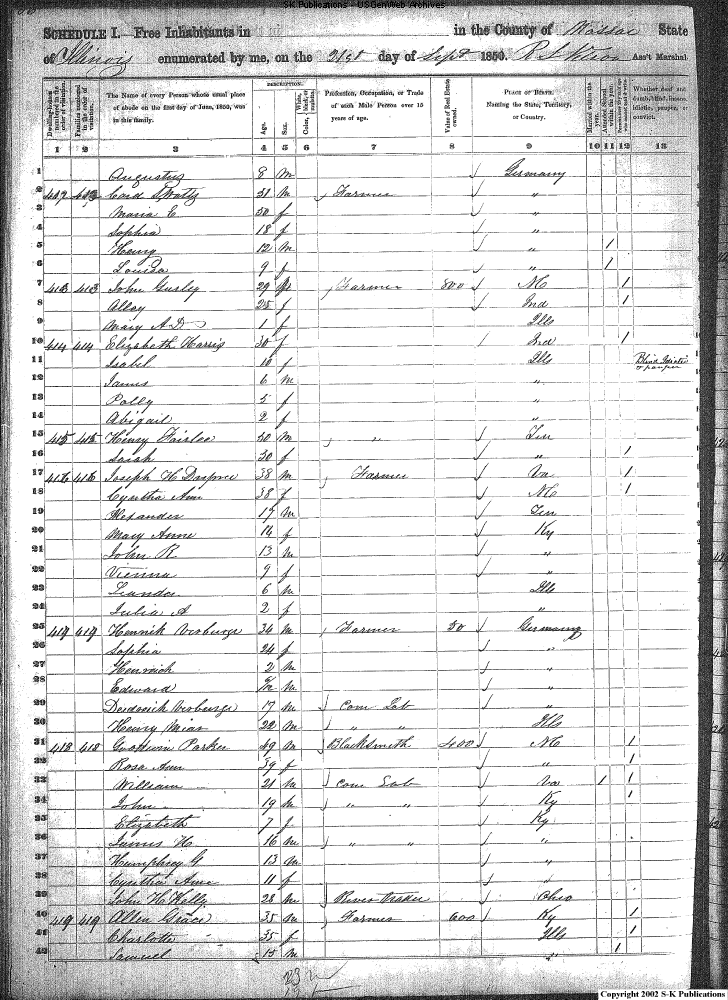 SK Publications - USGenWeb Archives
SCHEDULE I. Free Inhabitants in in the County of Massac State
of Illinois enumerated by me, on the 21st day of Sept 1850. Ass't Marshal
Dwelling-houses numbered in the order of visitation. Families numbered in the order of visitation. The Name of every Person whose usual place of abode on the first day of June, 1850, was in this family. DESCRIPTION. Age. Sex. White, black, or mulatto. Color, Profession, Occupation, or Trade of each Male Person over 15 years of age. Value of Real Estate owned. PLACE OF BIRTH. Naming the State, Territory, or Country. Married within the year. Attended School within the year. Whether deaf and dumb, blind, insane, idiotic, pauper, or convict.
1 2 3 4 5 6 7 8 9 10 11 12 13
1 Augustus 8 m Germany
2 412 412 31 m Farmer "
3 Maria E 30 f "
4 Sophia 18 f "
5 Henry 12 m " 1
6 Louisa 9 f " 1
7 413 413 John Gurley 29 m Farmer 800 NC 1
8 Alley 25 f Ind 1
9 Mary A 1 f Ills
10 414 414 Elizabeth Harris 30 f Ind 1
11 Isabel 10 f Ills Blind Idiotic & pauper
12 James 6 m "
13 Polly 5 f "
14 Abigail 2 f "
15 415 415 Henry Fairlee 30 m " Ten
16 Sarah 30 f " 1
17 416 416 Joseph H 38 m Farmer Va 1
18 Cyntha Ann 38 f NC 1
19 Alexander 17 m Ten
20 Mary Anne 14 f Ky
21 John R 13 m "
22 Vienna 9 f "
23 Leander 6 m Ills
24 Julia A 2 f "
25 417 417 Hennik Verburge 34 m Farmer 50 Germany
26 Sophia 24 f "
27 Henrich 2 m "
28 Edward m "
29 Verburge 17 m Com Lab "
30 Henry Mias 22 m " " Ills
31 418 418 Goodwin Parker 49 m Blacksmith 400 NC 1
32 Rosa Ann 39 f " 1
33 William 21 m Com Lab Va 1 1
34 John 19 m " " Ky 1
35 Elizabeth 7 f Ky
36 James H 16 m " " "
37 Humphrey G 13 m "
38 Cyntha Ann 11 f "
39 John H Kelly 28 m River trader Ohio
40 419 419 Allen Grace 35 m Farmer 600 Ky 1
41 Charlotte 35 f Ills 1
42 Samuel 15 m " 1
Copyright 2002 S-K Publications